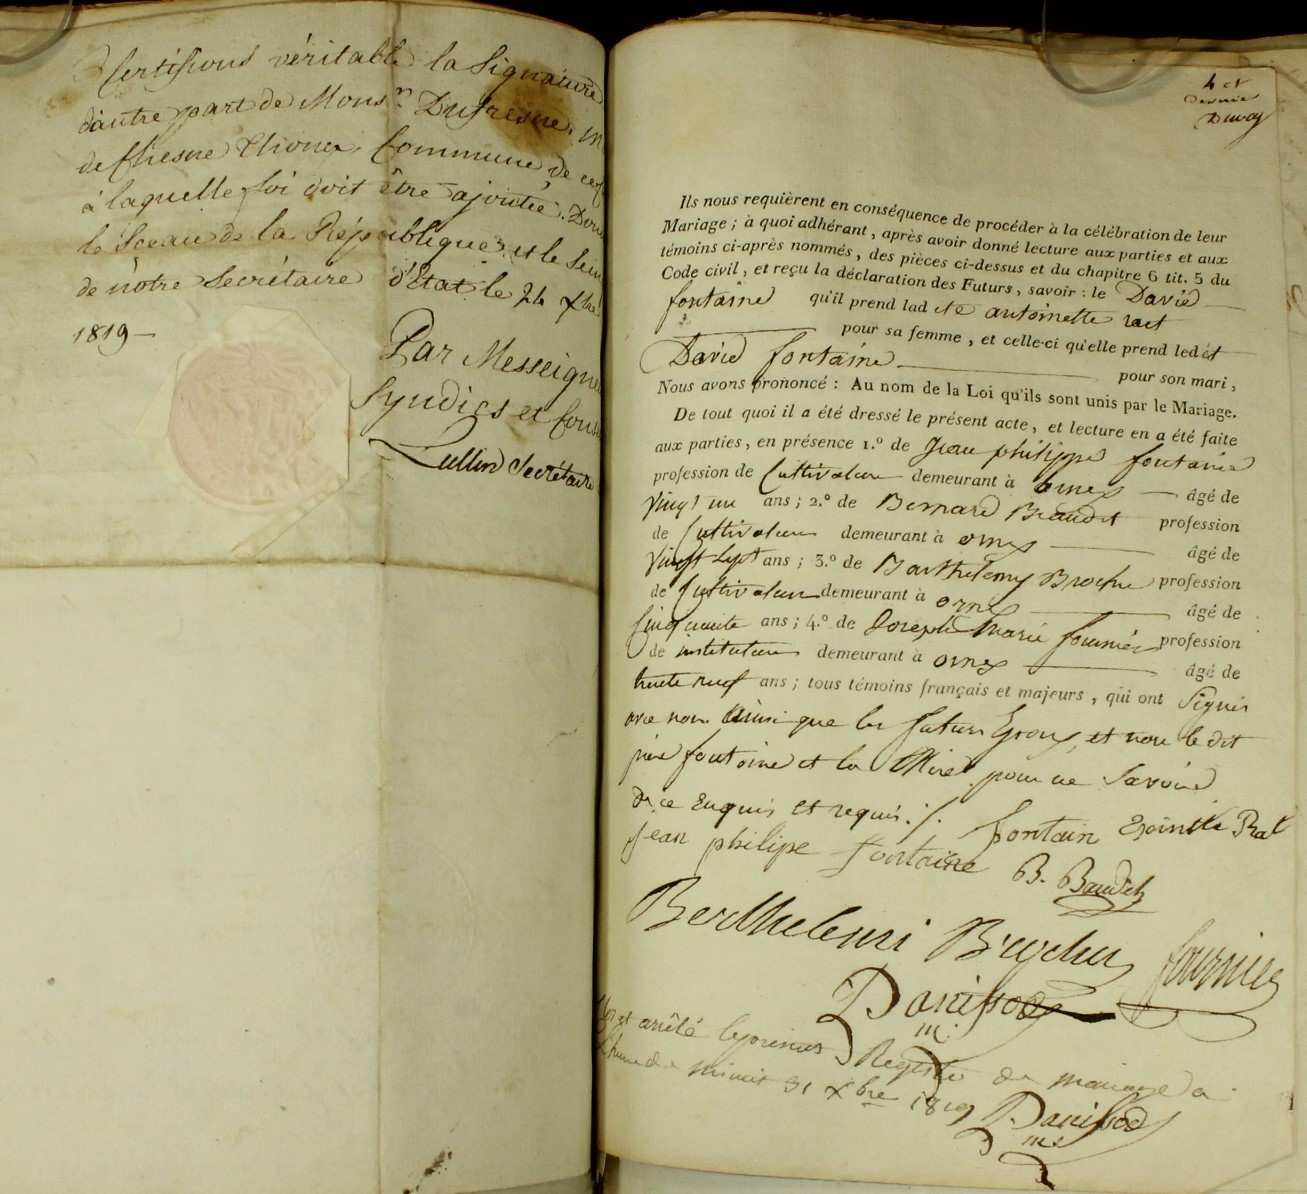 Certifions véritable la Signature
d'autre part de Mons.r Dufresne,
de Chesne Commune de
à laquelle foi doit être ajoutée.
le Sceau de la République et le Sein
de nôtre Secrétaire d'Etat le 24 Xbre
1819 -
Par Messeigne
Syndics et Cons
Lullin Secrétaire
4 et
Dernier
Duvoy
Ils nous requièrent en conséquence de procéder à la célébration de leur
Mariage ; à quoi adhérant, après avoir donné lecture aux parties et aux
témoins ci-après nommés, des pièces ci-dessus et du chapitre 6 tit. 5 du
Code civil, et reçu la déclaration des Futurs, savoir : le David
fontaine qu'il prend lad ite antoinette rat
pour sa femme, et celle-ci qu'elle prend led it
David fontaine pour son mari,
Nous avons prononcé : Au nom de la Loi qu'ils sont unis par le Mariage.
De tout quoi il a été dressé le présent acte, et lecture en a été faite
aux parties, en présence 1.º de Jean philippe fontaine
profession de Cultivateur demeurant à ornex âgé de
vingt un ans ; 2.º de Bernard Baudet profession
de Cultivateur demeurant à ornex âgé de
vingt sept ans ; 3.º de Barthelemy Broche profession
de Cultivateur demeurant à ornex âgé de
Cinquante ans ; 4.º de Joseph Marie fournier profession
de instituteur demeurant à ornex âgé de
trente neuf ans ; tous témoins français et majeurs, qui ont Signés
avec nous ainsi que les futurs Epoux, et non le dit
père fontaine et la Mère pour ne Savoir
de ce Enquis et requis ./.
fontain Rat
jean philipe fontaine B. Baudet
Berthelemi Brochu fournier
Danissod
m.
Clos et arrêté le présent Registre de mariage a
l'heure de minuit 31 Xbre 1819
Danissod
m.e